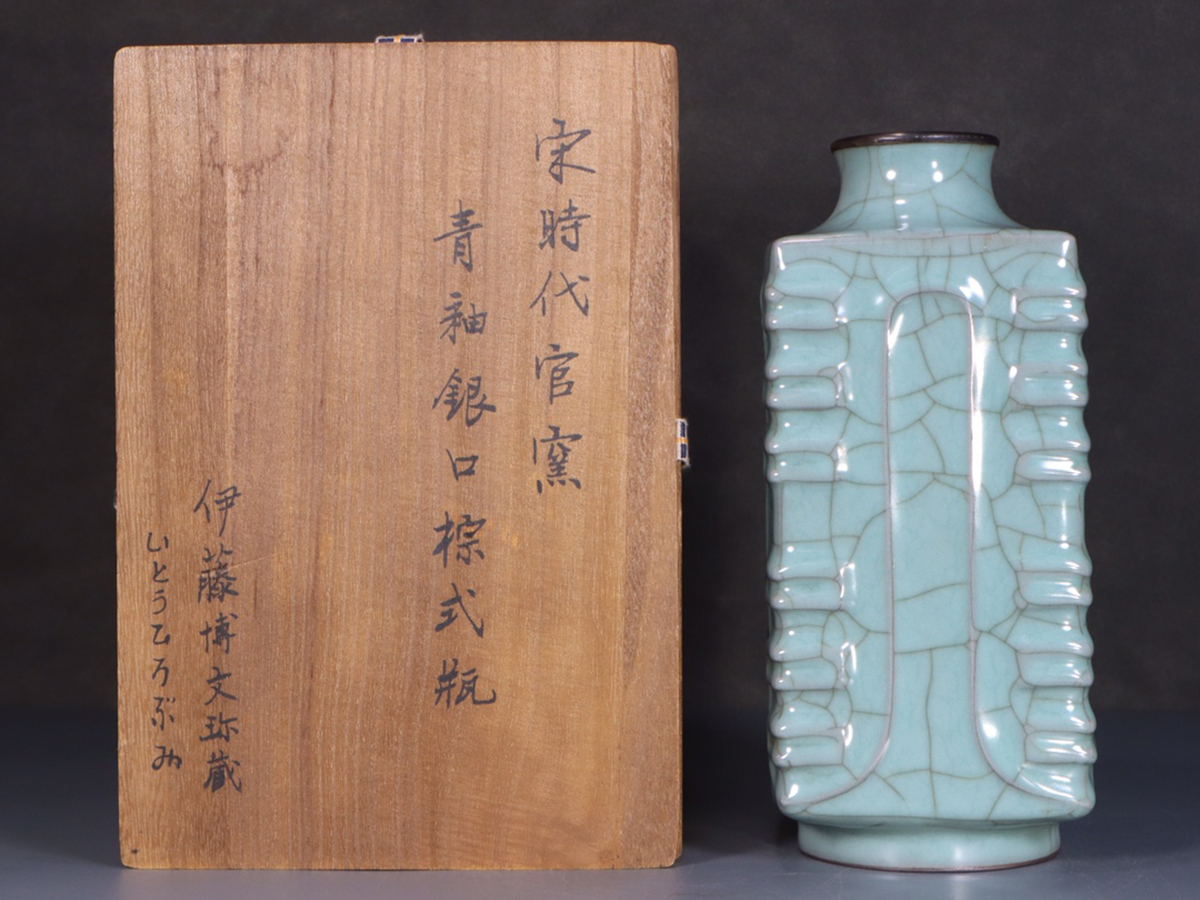 宋時代官窯
青袖銀口棕式瓶
伊藤博文珎蔵
いとうひろぶみ